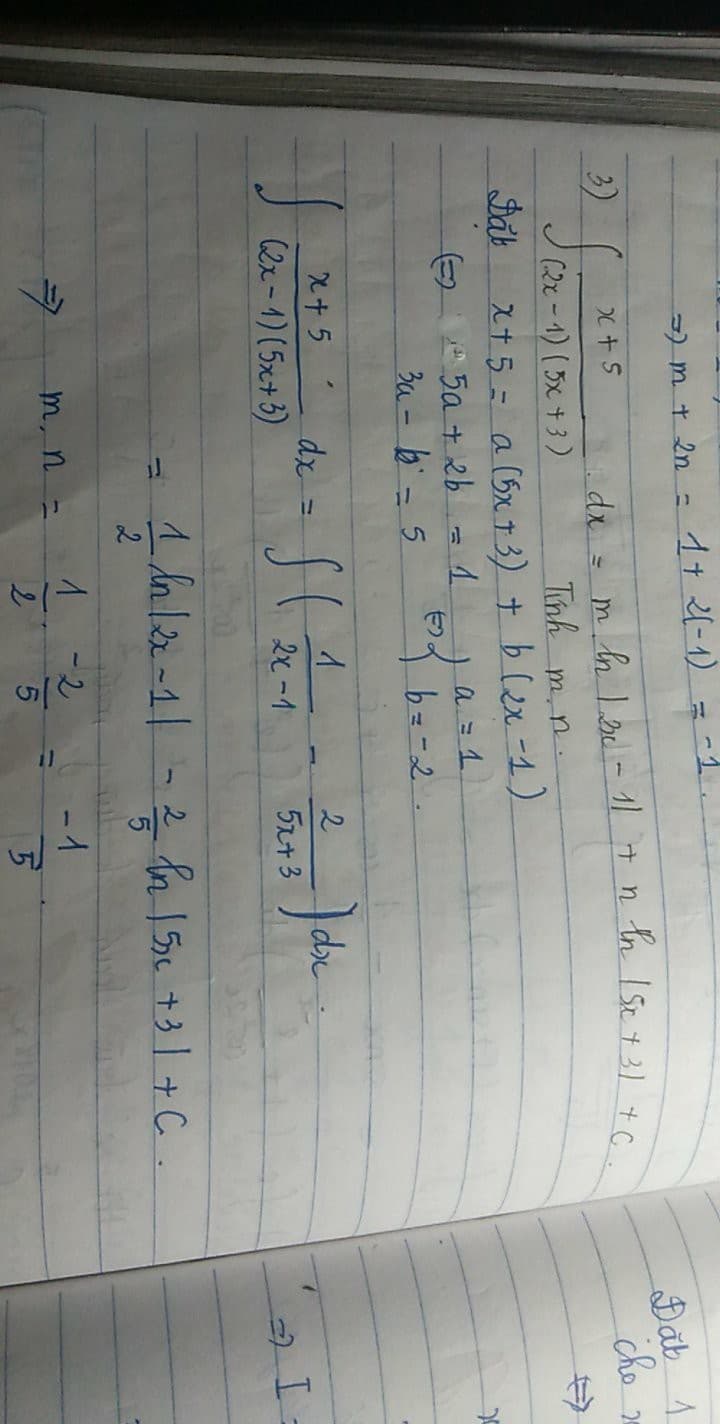 =) m + 2n = 1 + 2(-1) = -1.
3) ∫ x+5 / (2x-1)(5x+3) . dx = m. ln |2x - 1| + n ln |5x + 3| + C.
Tính m.n.
Đặt x + 5 = a(5x+3) + b(2x-1)
(=) 5a + 2b = 1 (=) { a = 1
3a - b = 5 b = -2.
∫ x+5 / (2x-1)(5x+3) dx = ∫ ( 1 / 2x-1 - 2 / 5x+3 ) dx.
= 1/2 ln |2x-1| - 2/5 ln |5x+3| + C.
=> m. n = 1/2 . -2/5 = -1/5.
Đặt 1
cho x
(=)
x
=) I =